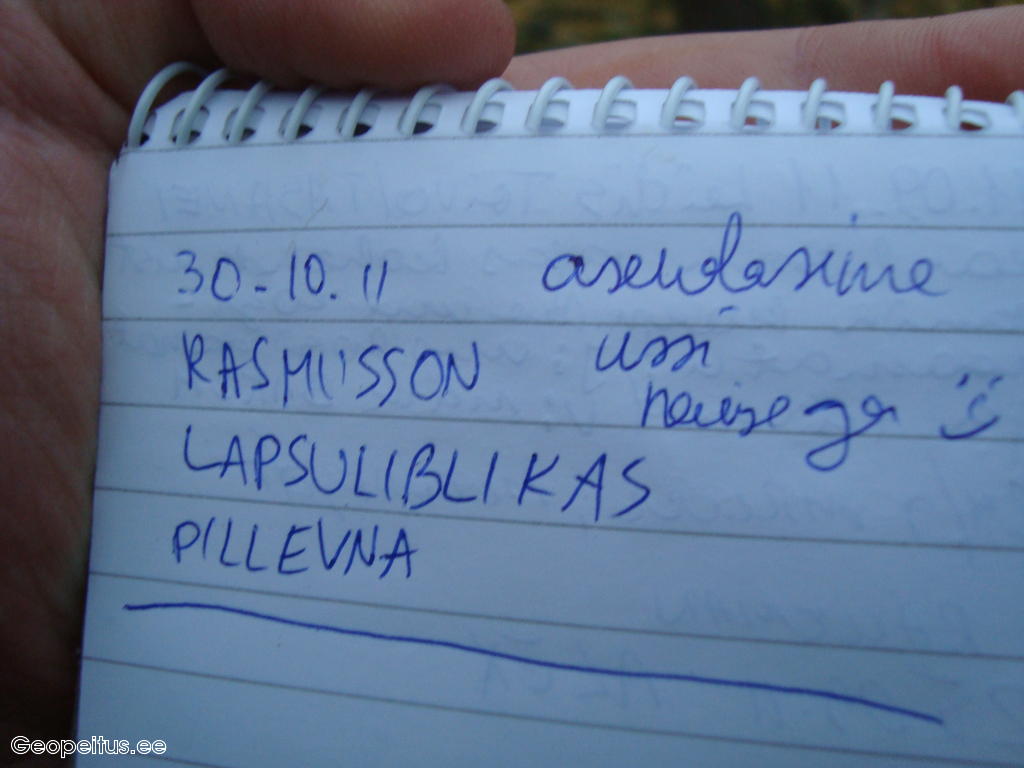 30-10.11 asendasime
RASMUSSON ussi
naisega :)
LAPSULIBLIKAS
PILLEVNA
Geopeitus.ee